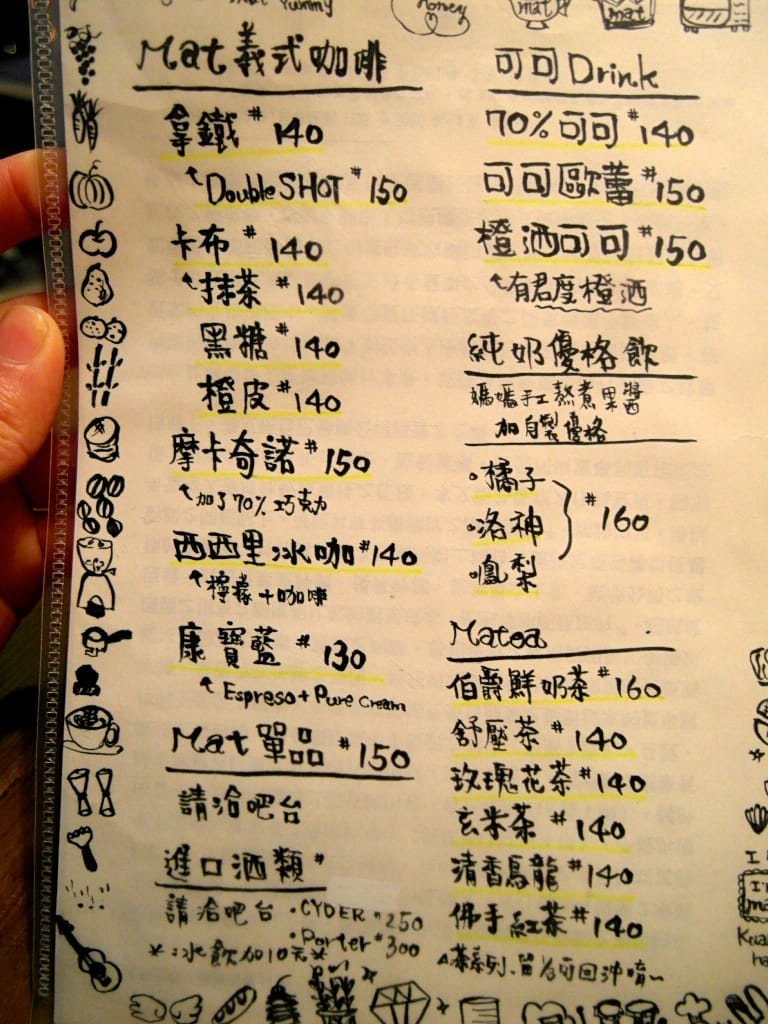 Yummy
Honey
mat
mat
Mat義式咖啡
拿鐵 # 140
Double SHOT # 150
卡布 # 140
抹茶 # 140
黑糖 # 140
橙皮 # 140
摩卡奇諾 # 150
加了70% 巧克力
西西里冰咖 # 140
檸檬+咖啡
康寶藍 # 130
Espreso + Pure Cream
Mat 單品 # 150
請洽吧台
進口酒類 #
請洽吧台 ・CYDER # 250
・Porter # 300
*:冰飲加10元*
可可 Drink
70%可可 # 140
可可歐蕾 # 150
橙酒可可 # 150
有君度橙酒
純奶優格飲
媽媽手工熬煮果醬
加自製優格
。橘子
。洛神
鳳梨
# 160
Matea
伯爵鮮奶茶 # 160
舒壓茶 # 140
玫瑰花茶 # 140
玄米茶 # 140
清香烏龍 # 140
佛手紅茶 # 140
茶系列,皆可回沖唷~